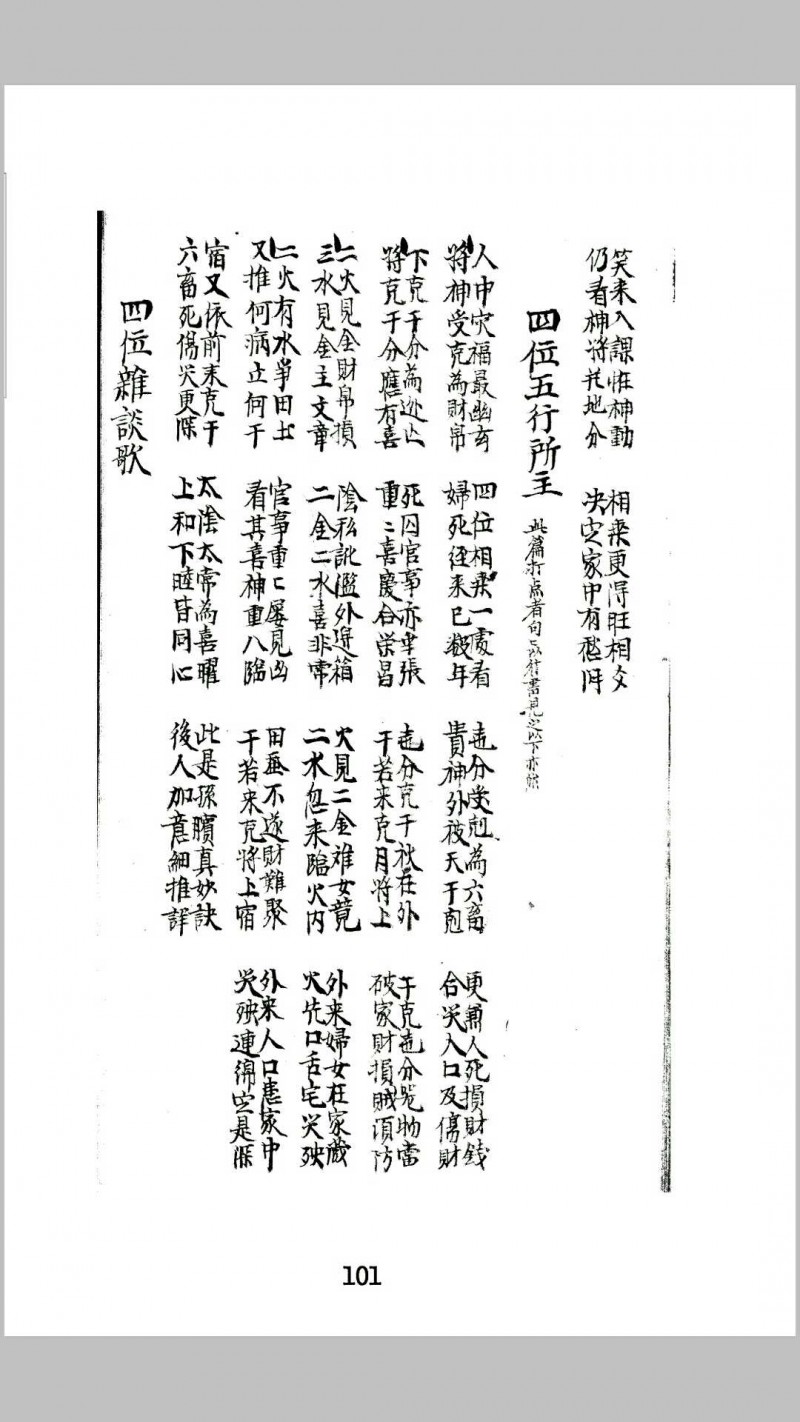 笑來入課惟神動 相乘更得旺相交
仍看神將 地分 决定家中有
四位五行所主 此篇打点者句
人中灾福最幽玄 四位相乘一處看 地分受剋為六畜 更兼人死損財錢
將神受克為財帛 婦死經來已數年 貴神外被天干剋 合哭入口及傷財
下克干分為 死囚官事亦乖張 地分克干秋在外 干克地分 物當
將克干分應有喜 重二喜慶合榮昌 干若來克月將上 破家財損賊須防
二火見金財帛損 陰私訛濫外 箱 火見二金难女竟 外來婦女在家藏
三水見金主文章 二金二水喜非常 二水忽来臨火内 火光口舌宅哭殃
二火有水爭田土 官事重二屢見凶 田蚕不遂財難聚 外來人口患家中
又推何病止何干 看其喜神重八臨 干若來克將上宿 哭殃連綿定是
宿又依前来克干 太陰太常為喜曜 此是孫臏真妙訣
六畜死傷哭更 上和下睦皆同心 後人加意細推詳
四位雜談歌
101